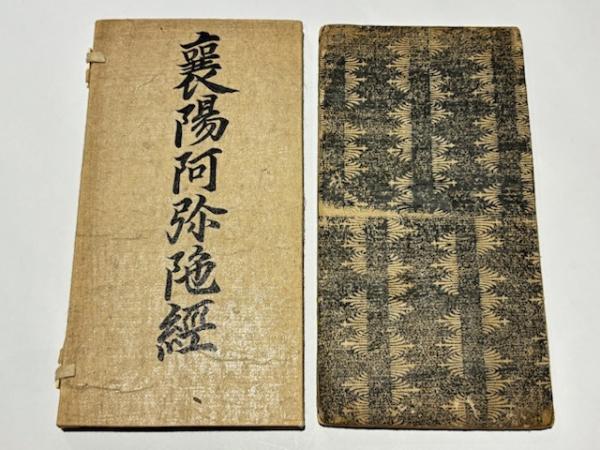 襄陽阿弥陁經